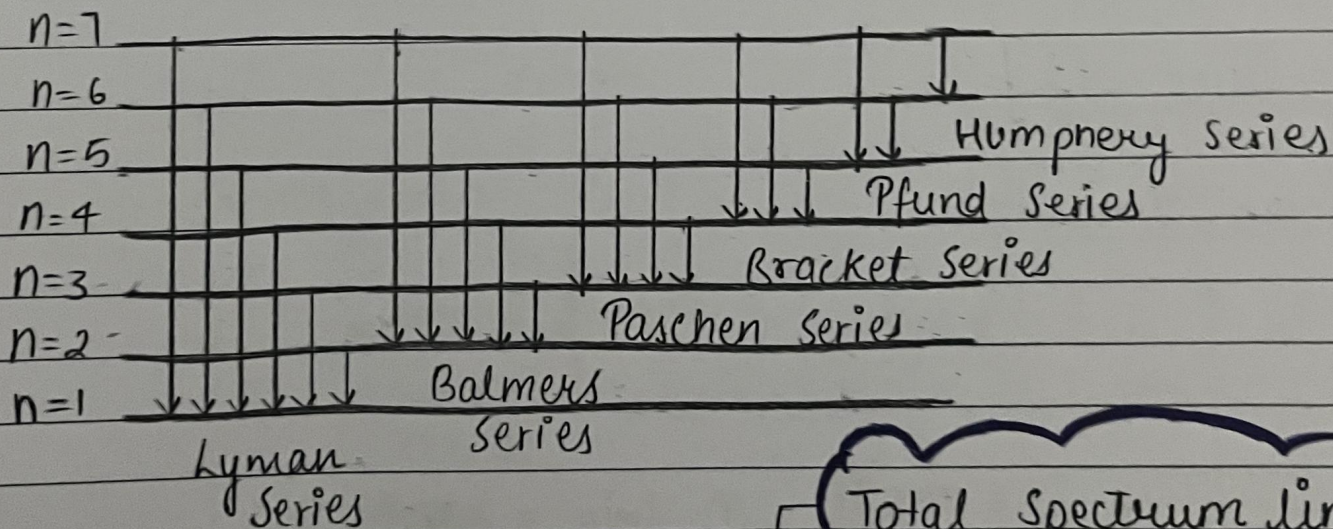 n=7
n=6
Humpnery Series
n=5
Pfund Series
n=4
Bracket Series
n=3
Paschen Series
n=2
Balmers
Series
n=1
Lyman
Series
Total Spectrum lin